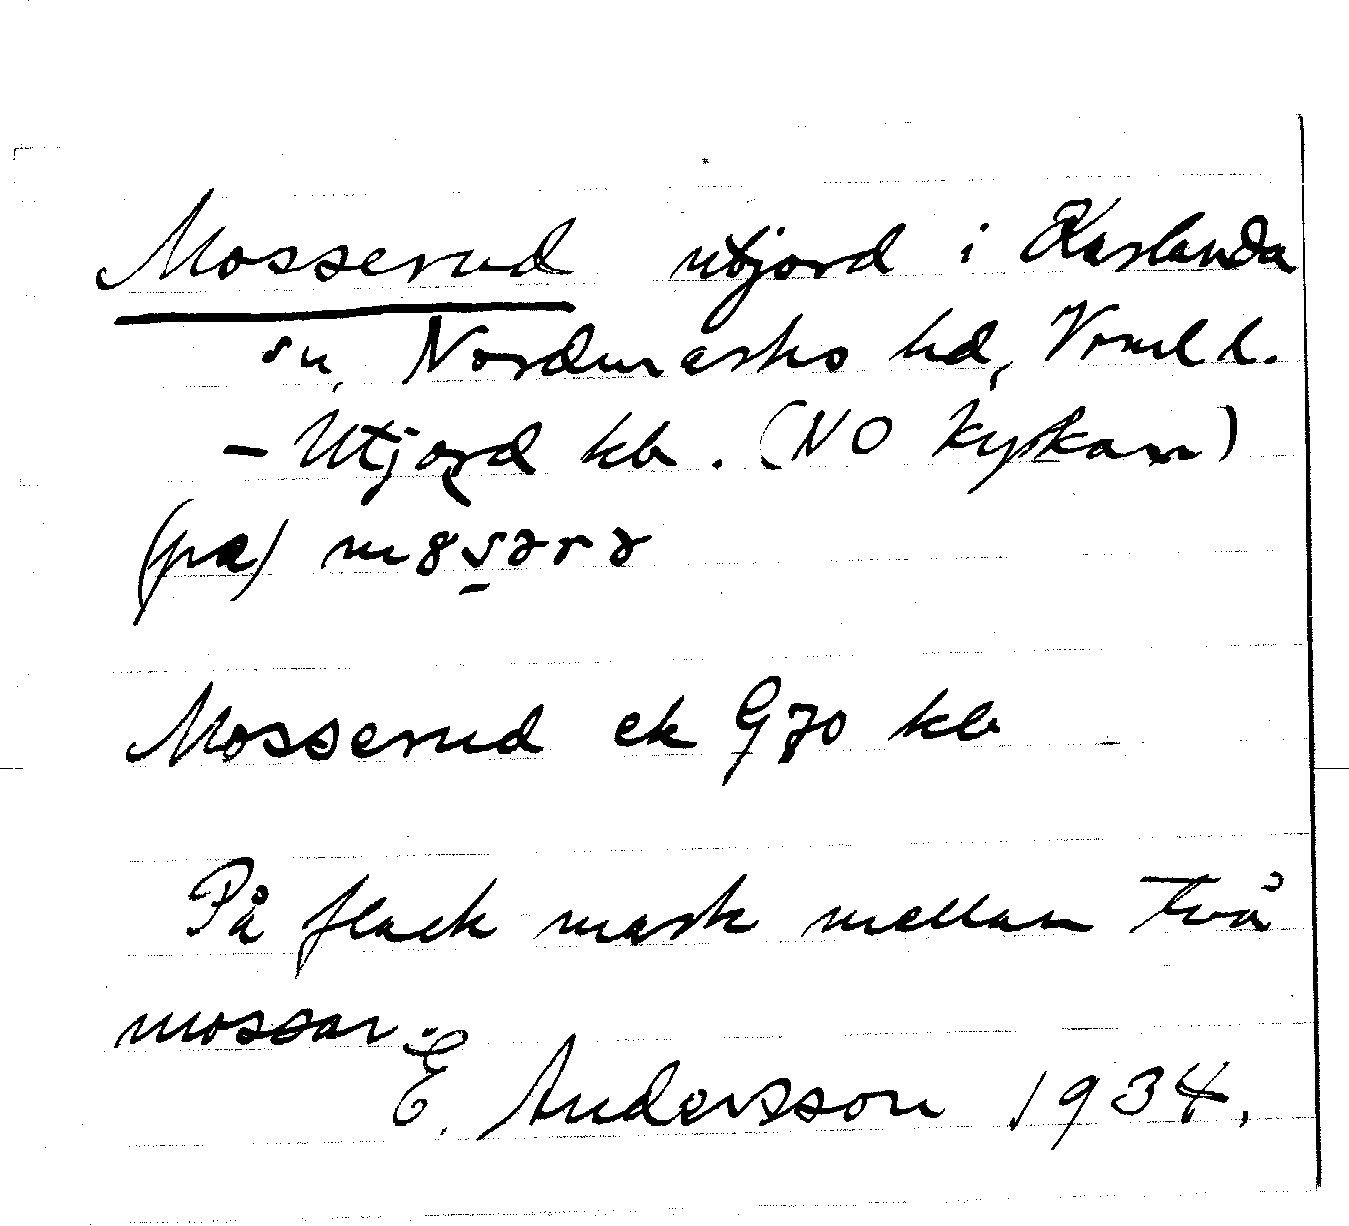 Mosserud utjord i Karlanda
sn, Nordmarks hd, Vrml l.
- Utjord kb. (NO Kyrkan)
(på)
Mosserud ek G70 kb
På flack mark mellan två
mossar.
E. Andersson 1934.